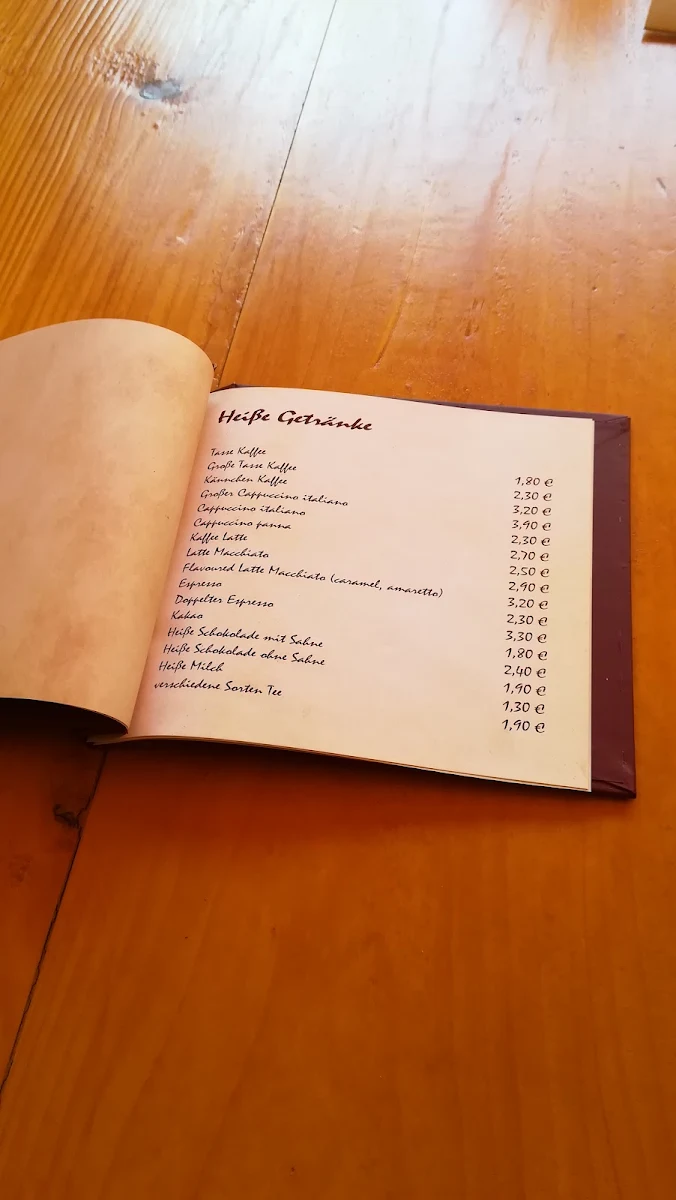 Heiße Getränke
Tasse Kaffee 1,80 €
Große Tasse Kaffee 2,30 €
Kännchen Kaffee 3,20 €
Großer Cappuccino italiano 3,90 €
Cappuccino italiano 2,30 €
Cappuccino panna 2,70 €
Kaffee Latte 2,50 €
Latte Macchiato 2,90 €
Flavoured Latte Macchiato (caramel, amaretto) 3,20 €
Espresso 2,30 €
Doppelter Espresso 3,30 €
Kakao 1,80 €
Heiße Schokolade mit Sahne 2,40 €
Heiße Schokolade ohne Sahne 1,90 €
Heiße Milch 1,30 €
verschiedene Sorten Tee 1,90 €